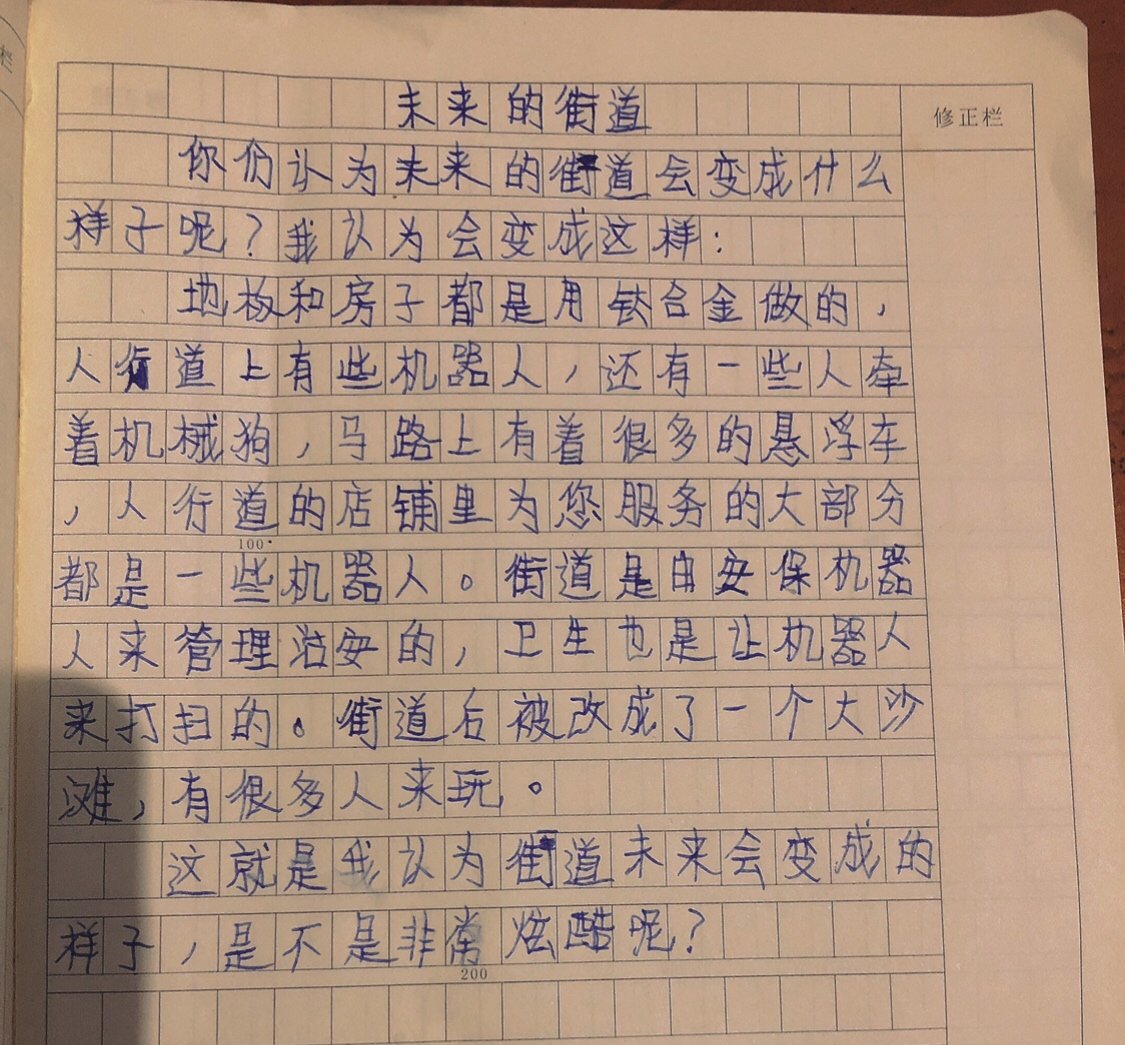 未来的街道
修正栏
你们认为未来的街道会变成什么
样子呢？我认为会变成这样：
地板和房子都是用钛合金做的，
人行道上有些机器人，还有一些人牵
着机械狗，马路上有着很多的悬浮车
，人行道的店铺里为您服务的大部分
100
都是一些机器人。街道是由安保机器
人来管理治安的，卫生也是让机器人
来打扫的。街道后被改成了一个大沙
滩，有很多人来玩。
这就是我认为街道未来会变成的
样子，是不是非常炫酷呢？
200